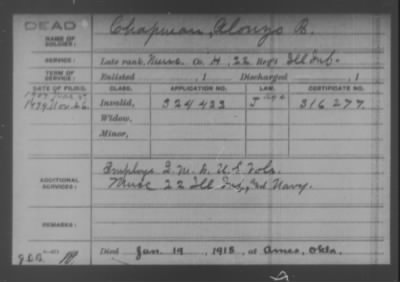 DEAD
NAME OF SOLDIER: Chapman, Alonzo B.
SERVICE: Late rank, Co. H, 22 Reg't Ill Inf.
TERM OF SERVICE: Enlisted , 1 Discharged , 1
DATE OF FILING. CLASS. APPLICATION NO. LAW. CERTIFICATE NO.
1879 Nov. 26 Invalid, 324433 J 316277.
Widow,
Minor,
ADDITIONAL SERVICES: Employe Q. M. D. U.S. Vols.
22 Ill Inf, Navy.
REMARKS:
Died Jan. 19, 1918, at Ames, Okla.